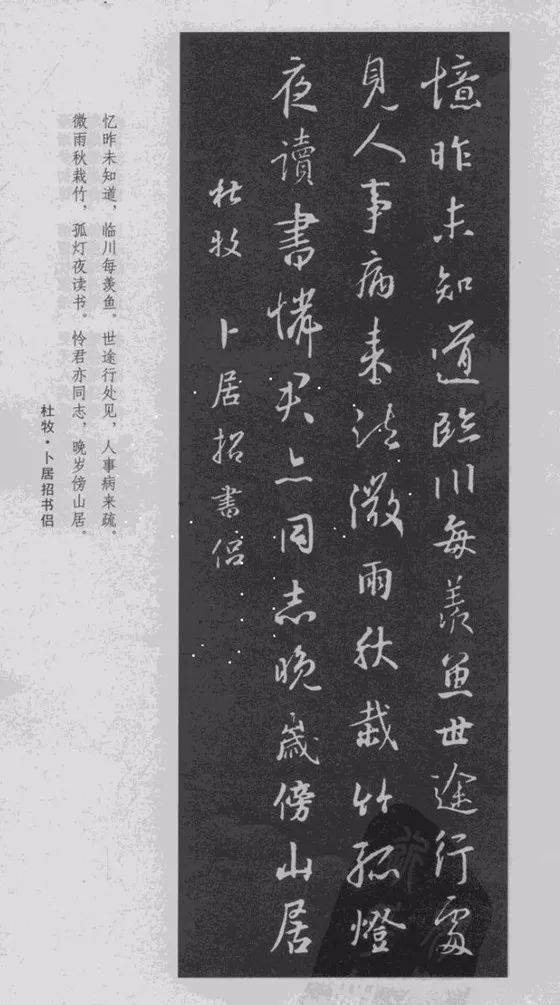 憶昨未知道臨川每羨魚世途行處
見人事病来疏微雨秋栽竹孤燈
夜讀書憐君亦同志晚歲傍山居
杜牧 卜居招書侣
忆昨未知道，临川每羡鱼。世途行处见，人事病来疏。
微雨秋栽竹，孤灯夜读书。怜君亦同志，晚岁傍山居。
杜牧·卜居招书侣